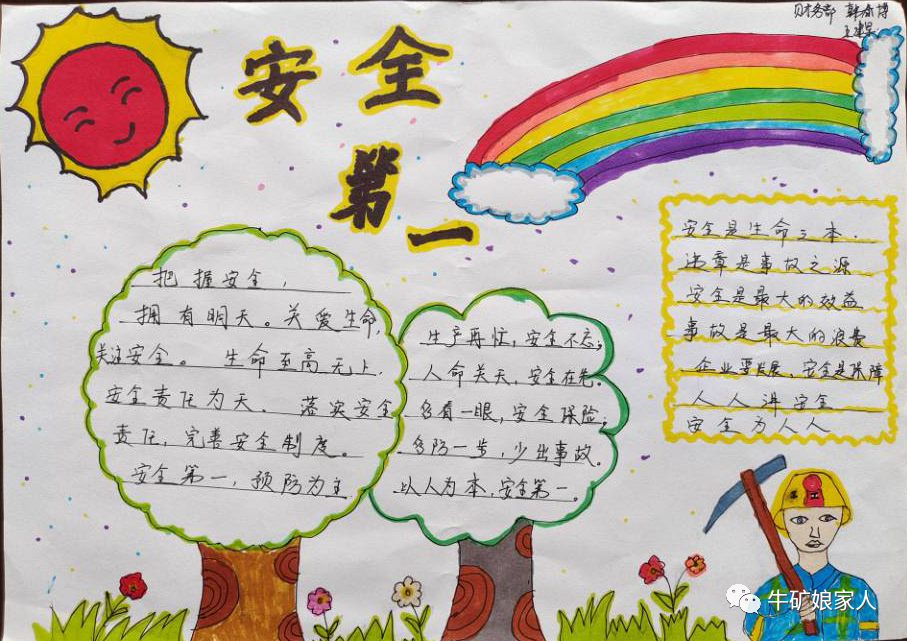 财务部
安全
第一
把握安全，
拥有明天。关爱生命，
关注安全。 生命至高无上，
安全责任为天． 落实安全
责任，完善安全制度。
安全第一，预防为主
生产再忙，安全不忘；
人命关天，安全在先。
多看一眼，安全保险；
多防一步，少出事故。
以人为本，安全第一。
安全是生命之本．
违章是事故之源
安全是最大的效益
事故是最大的浪费
企业要发展、安全是保障
人人讲安全
安全为人人
牛矿娘家人